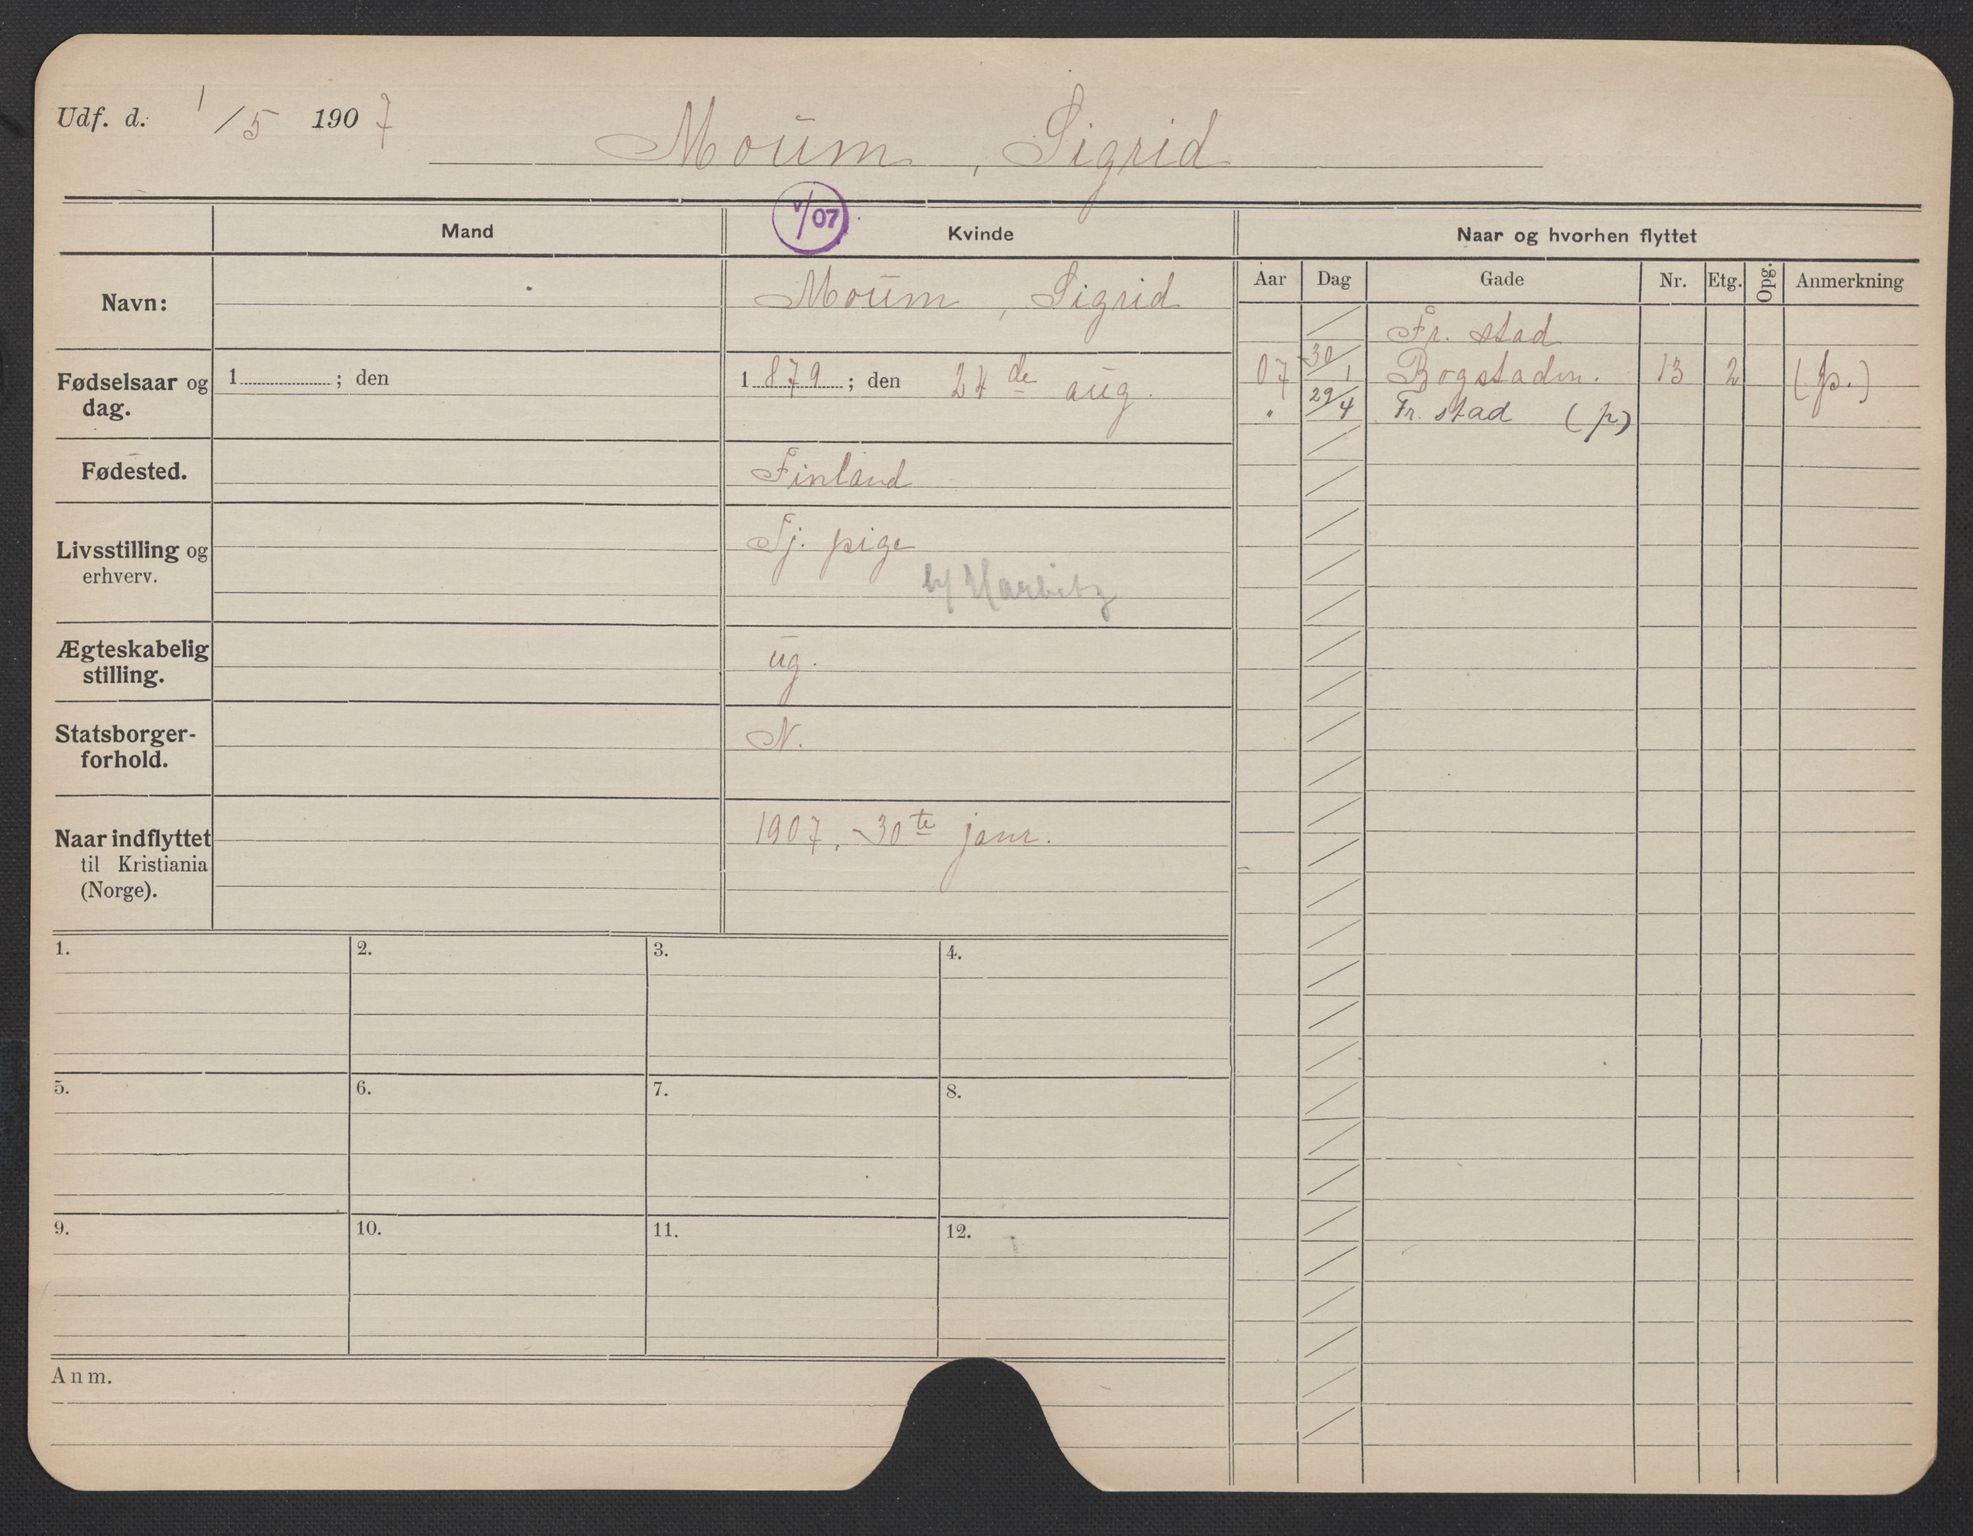 Udf. d. 1/5 1907
Moum, Sigrid
Mand
V/07
Kvinde
Naar og hvorhen flyttet
Navn:
Moum, Sigrid
Fødselsaar og dag.
1 ; den
1879 ; den 24de aug.
Fødested.
Finland
Livsstilling og erhverv.
Tj. pige
b/ Harbitz
Ægteskabelig stilling.
ug.
Statsborgerforhold.
N.
Naar indflyttet til Kristiania (Norge).
1907. 30te janr.
Aar Dag Gade Nr. Etg. Opg. Anmerkning
Fr. stad
07 30/1 Bogstadvn. 13 2 (p.)
" 29/4 Fr. stad (p)
1. 2. 3. 4.
5. 6. 7. 8.
9. 10. 11. 12.
Anm.